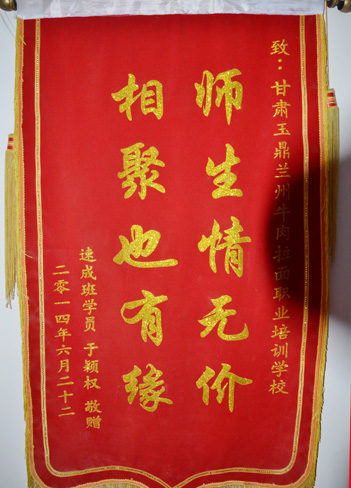 致：甘肃玉鼎兰州牛肉拉面职业培训学校
师生情无价
相聚也有缘
速成班学员 于颖权 敬赠
二零一四年六月二十二